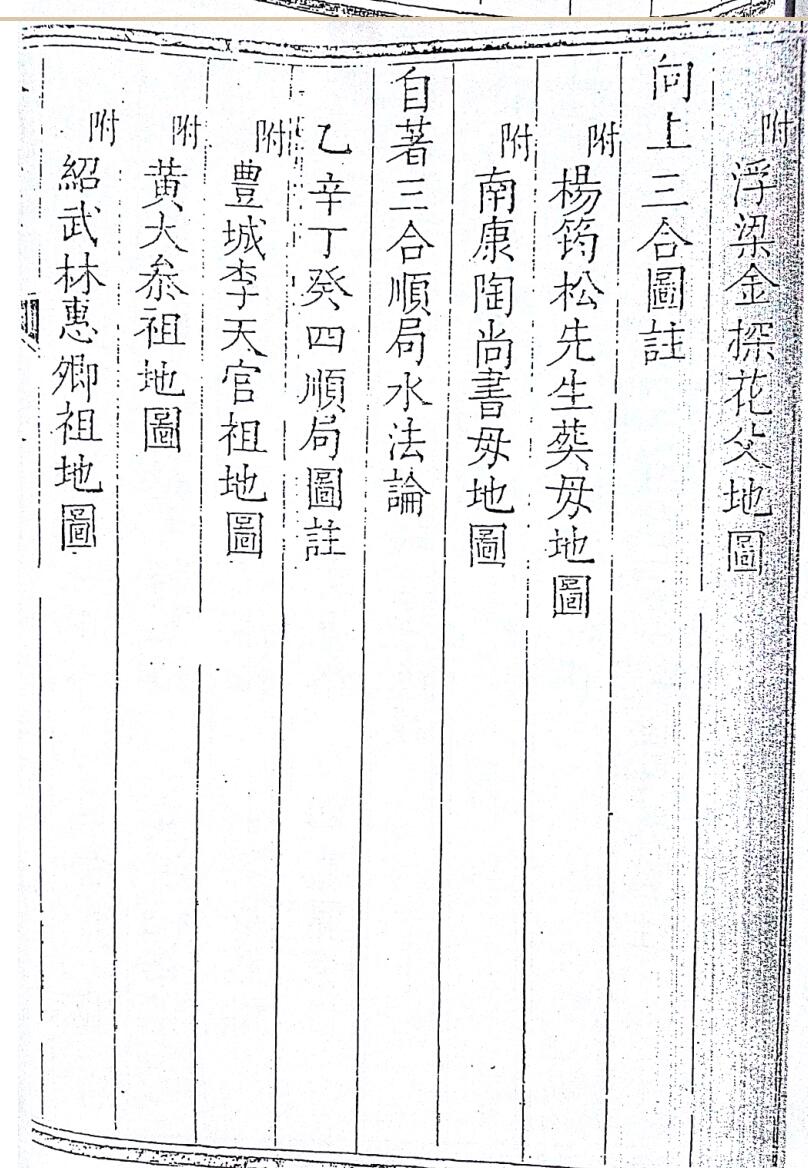 附浮梁金探花父地圖
向上三合圖註
附楊筠松先生葬母地圖
附南康陶尚書母地圖
自著三合順局水法論
乙辛丁癸四順局圖註
附豊城李天官祖地圖
附黃大叅祖地圖
附紹武林惠卿祖地圖